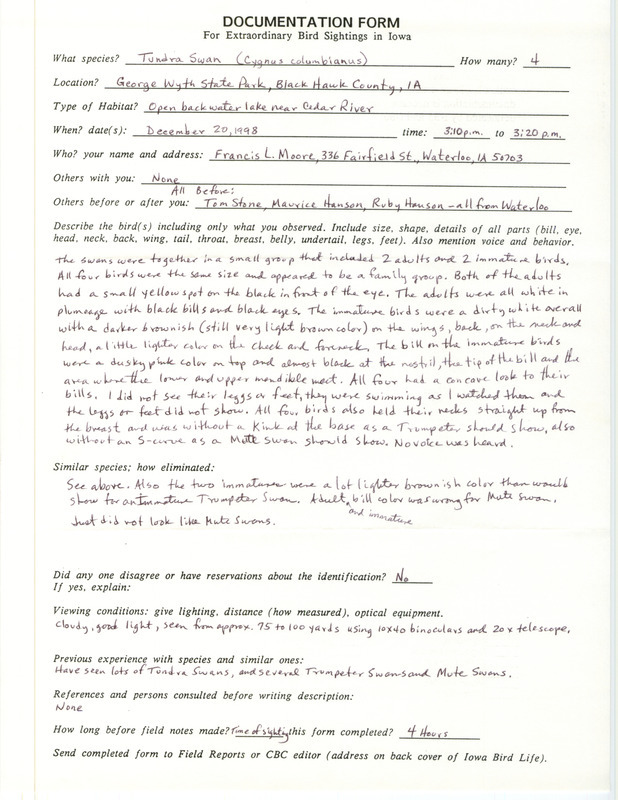 DOCUMENTATION FORM
For Extraordinary Bird Sightings in Iowa
What species? Tundra Swan (Cygnus columbianus) How many? 4
Location? George Wyth State Park, Black Hawk County, IA
Type of Habitat? Open backwater lake near Cedar River
When? date(s): December 20, 1998 time: 3:10 p.m. to 3:20 p.m.
Who? your name and address: Francis L. Moore, 336 Fairfield St., Waterloo, IA 50703
Others with you: None
All Before:
Others before or after you: Tom Stone, Maurice Hanson, Ruby Hanson - all from Waterloo
Describe the bird(s) including only what you observed. Include size, shape, details of all parts (bill, eye,
head, neck, back, wing, tail, throat, breast, belly, undertail, legs, feet). Also mention voice and behavior.
The swans were together in a small group that included 2 adults and 2 immature birds.
All four birds were the same size and appeared to be a family group. Both of the adults
had a small yellow spot on the black in front of the eye. The adults were all white in
plumeage with black bills and black eyes. The immature birds were a dirty white overall
with a darker brownish (still very light brown color) on the wings, back, on the neck and
head, a little lighter color on the cheek and foreneck. The bill on the immature birds
were a dusky pink color on top and almost black at the nostril, the tip of the bill and the
area where the lower and upper mandible meet. All four had a concave look to their
bills. I did not see their leggs or feet, they were swimming as I watched them and
the leggs or feet did not show. All four birds also held their necks straight up from
the breast and was without a kink at the base as a Trumpeter should show, also
without an S-curve as a Mute Swan should show. No voice was heard.
Similar species; how eliminated:
See above. Also the two immatures were a lot lighter brownish color than would
show for an immature Trumpeter Swan. Adult ^ bill color was wrong for Mute Swan.
and immature
Just did not look like Mute Swans.
Did any one disagree or have reservations about the identification? No
If yes, explain:
Viewing conditions: give lighting, distance (how measured), optical equipment.
Cloudy, good light, seen from approx. 75 to 100 yards using 10x40 binoculars and 20x telescope.
Previous experience with species and similar ones:
Have seen lots of Tundra Swans, and several Trumpeter Swans and Mute Swans.
References and persons consulted before writing description:
None
How long before field notes made? Time of sighting this form completed? 4 Hours
Send completed form to Field Reports or CBC editor (address on back cover of Iowa Bird Life).